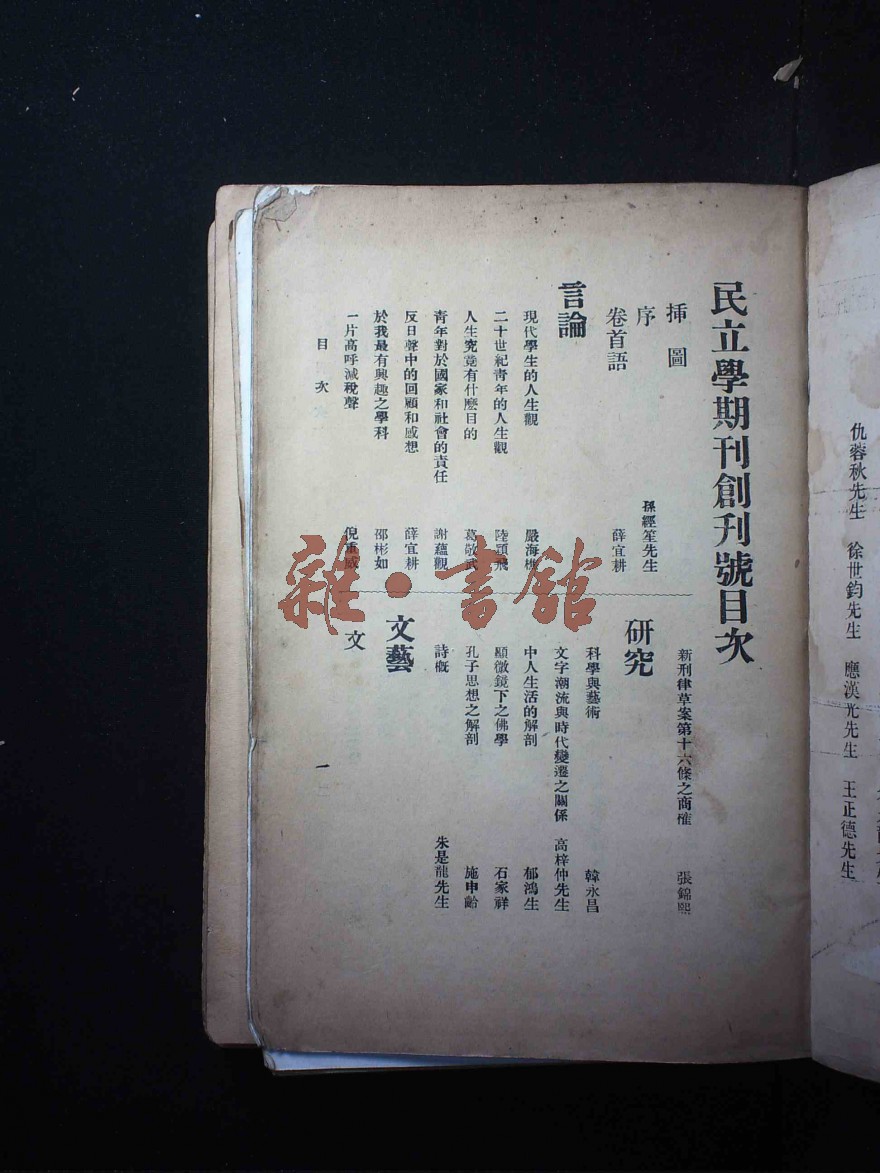 民立學期刊創刊號目次
揷圖
序 孫經笙先生
卷首語 薛宜耕
言論
現代學生的人生觀 嚴海樵
二十世紀靑年的人生觀 陸頭飛
人生究竟有什麼目的 葛敬武
靑年對於國家和社會的責任 謝蘊觀
反日聲中的回顧和感想 薛宜耕
於我最有興趣之學科 邵彬如
一片高呼減稅聲 倪重威
新刑律草案第十六條之商榷 張錦熙
研究
科學與藝術 韓永昌
文字潮流與時代變遷之關係 高梓仲先生
中人生活的解剖 郁鴻生
顯微鏡下之佛學 石家祥
孔子思想之解剖 施申齡
詩槪 朱是龍先生
文藝
文
目次
一
仇蓉秋先生 徐世鈞先生 應漢光先生 王正德先生
雜·書館